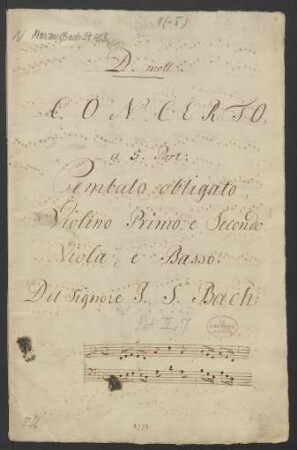 D. moll.
CONCERTO,
a. 5. Part:
Cembalo obligato,
Violino Primo e Secondo
Viola, e Basso.
Del Signore J. S. Bach.